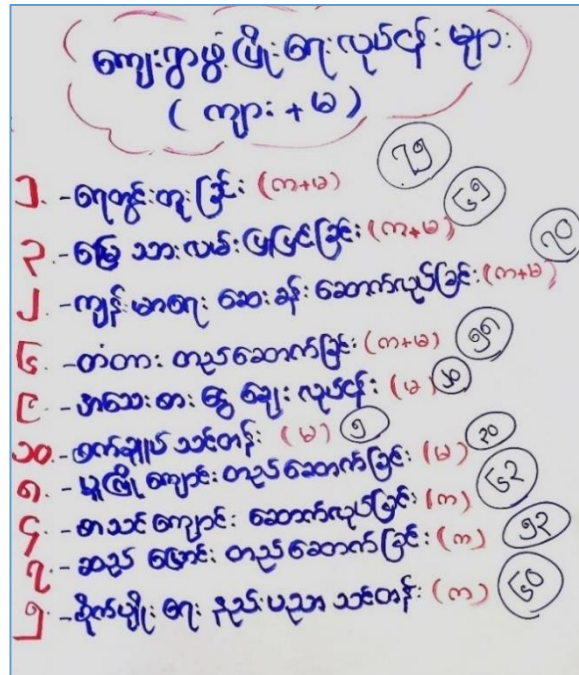 ကျေးရွာဖွံ့ဖြိုးရေးလုပ်ငန်းများ
(ကျား + မ)
၁. -ရေတွင်းတူးခြင်း (က+မ) ၇၅
၃. -မြေသားလမ်းပြုပြင်ခြင်း (က+မ) ၆၅
၂. -ကျန်းမာရေးဆေးခန်းဆောက်လုပ်ခြင်း (က+မ) ၇၀
၆. -တံတားတည်ဆောက်ခြင်း (က+မ)
၉. -အသေးစားငွေချေးလုပ်ငန်း (မ)
၁၀. -စက်ချုပ်သင်တန်း (မ) ၅
၈. -မူကြိုကျောင်းတည်ဆောက်ခြင်း (မ) ၃၀
၄. -စာသင်ကျောင်းဆောက်လုပ်ခြင်း (က) ၆၃
၇. -ဆည်မြောင်းတည်ဆောက်ခြင်း (က) ၅၃
၅. -စိုက်ပျိုးရေးနည်းပညာသင်တန်း (က) ၆၀